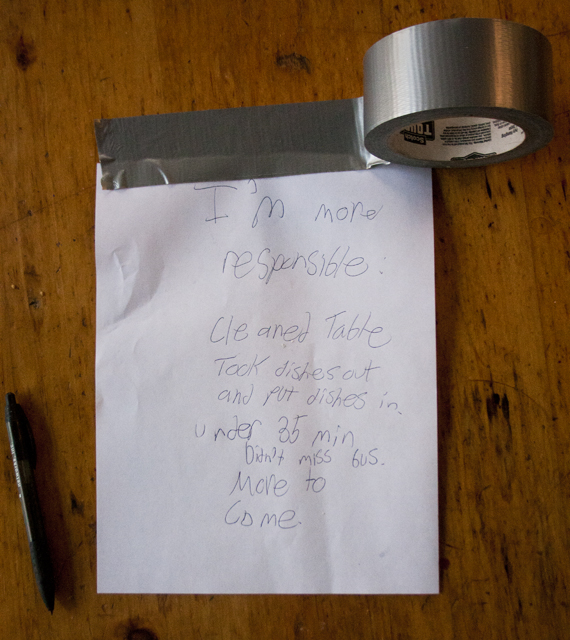 I'm more
responsible:
Cleaned Table
Took dishes out
and put dishes in.
under 35 min
Didn't miss bus.
More to
Come.
Scotch